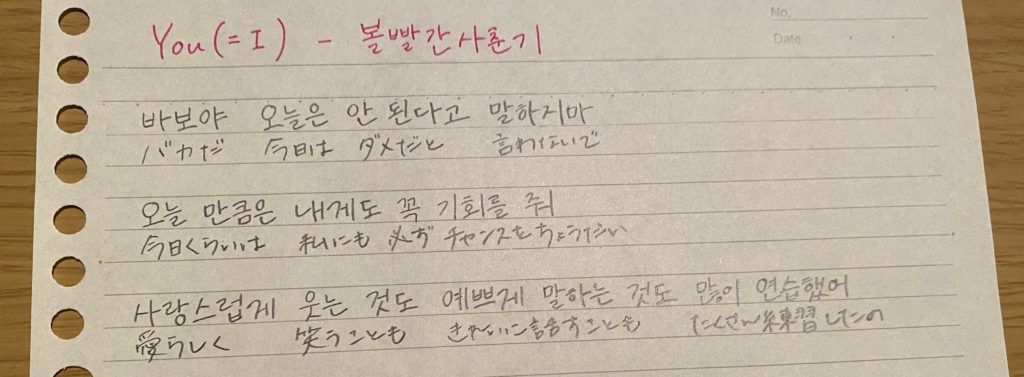 No.
Date
You(=I) - 볼빨간사춘기
바보야 오늘은 안 된다고 말하지마
バカだ 今日は ダメだと 言わないで
오늘 만큼은 내게도 꼭 기회를 줘
今日くらいは 私にも 必ず チャンスをちょうだい
사랑스럽게 웃는 것도 예쁘게 말하는 것도 많이 연습했어
愛らしく 笑うことも きれいに話すことも たくさん練習したの